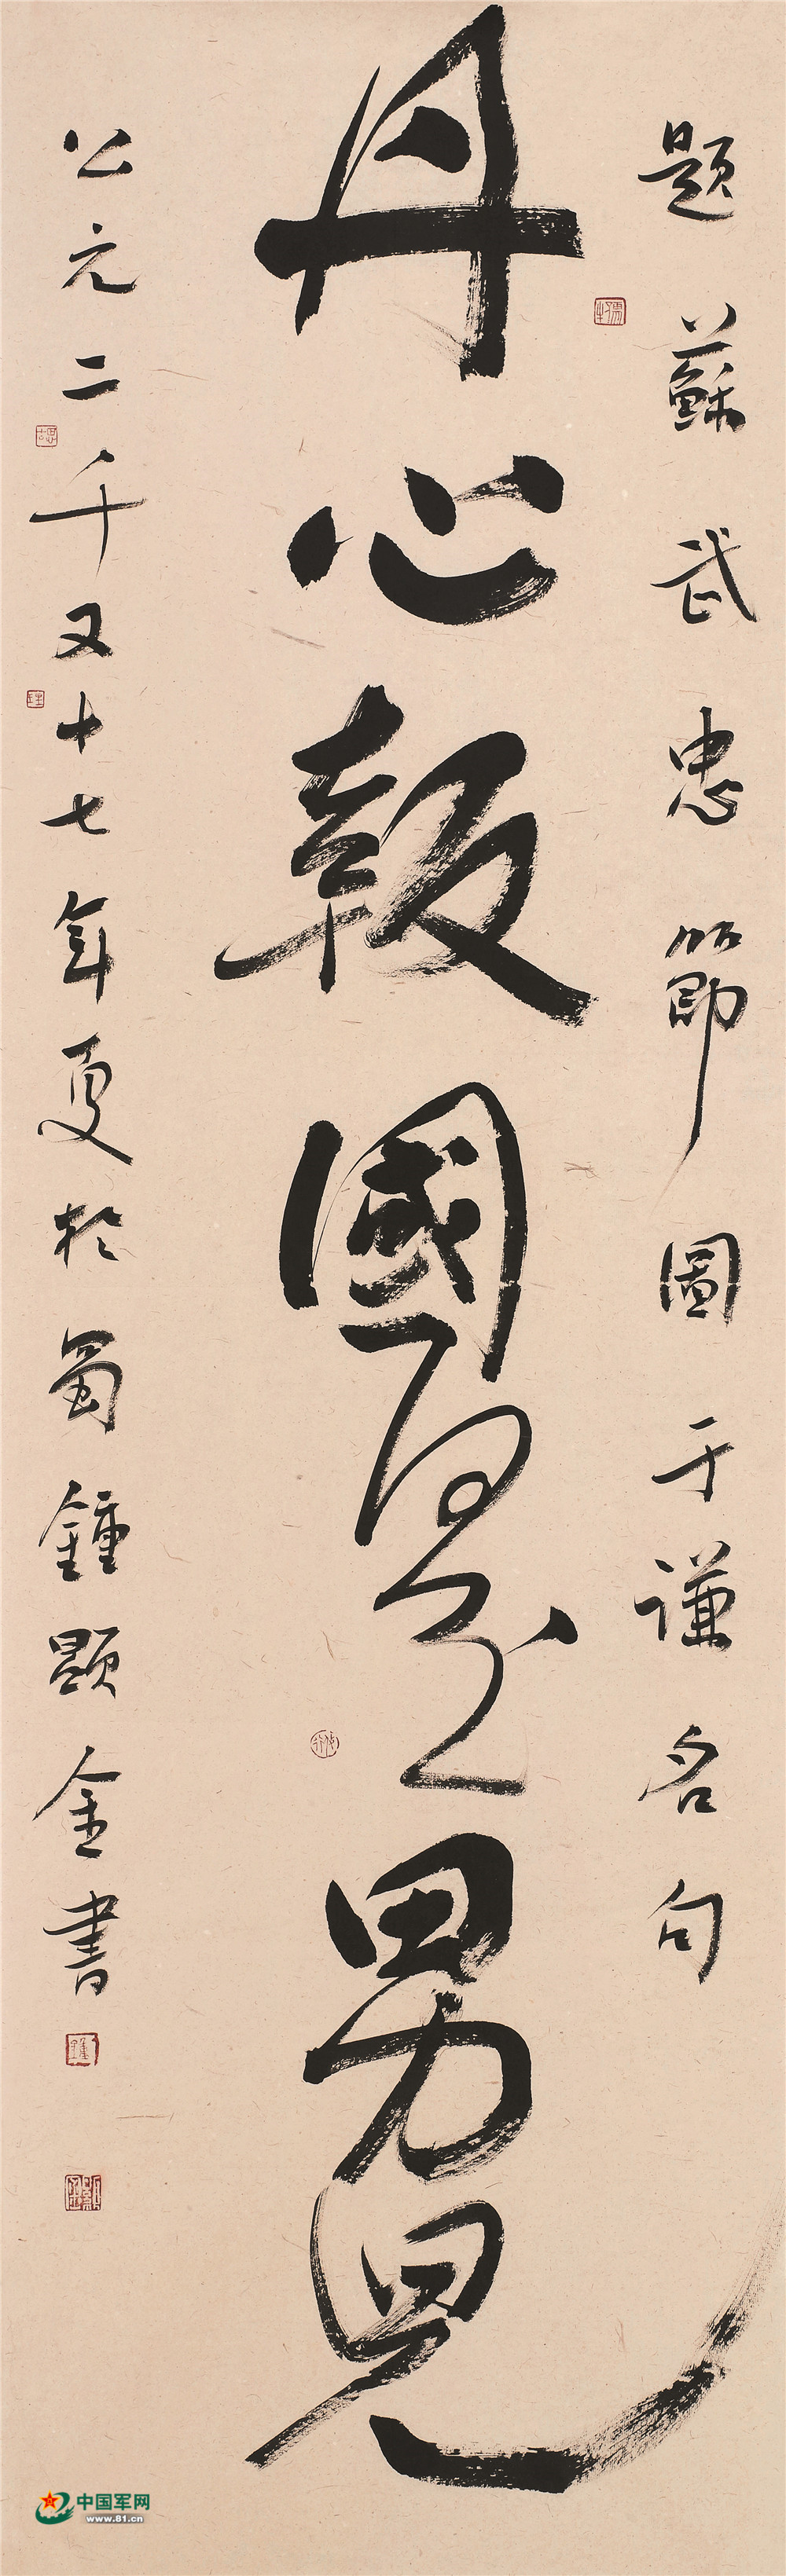 題蘇武忠節圖于謙名句
丹心報國是男兒
公元二千又十七年夏於蜀鍾顕金書
中国军网
www.81.cn